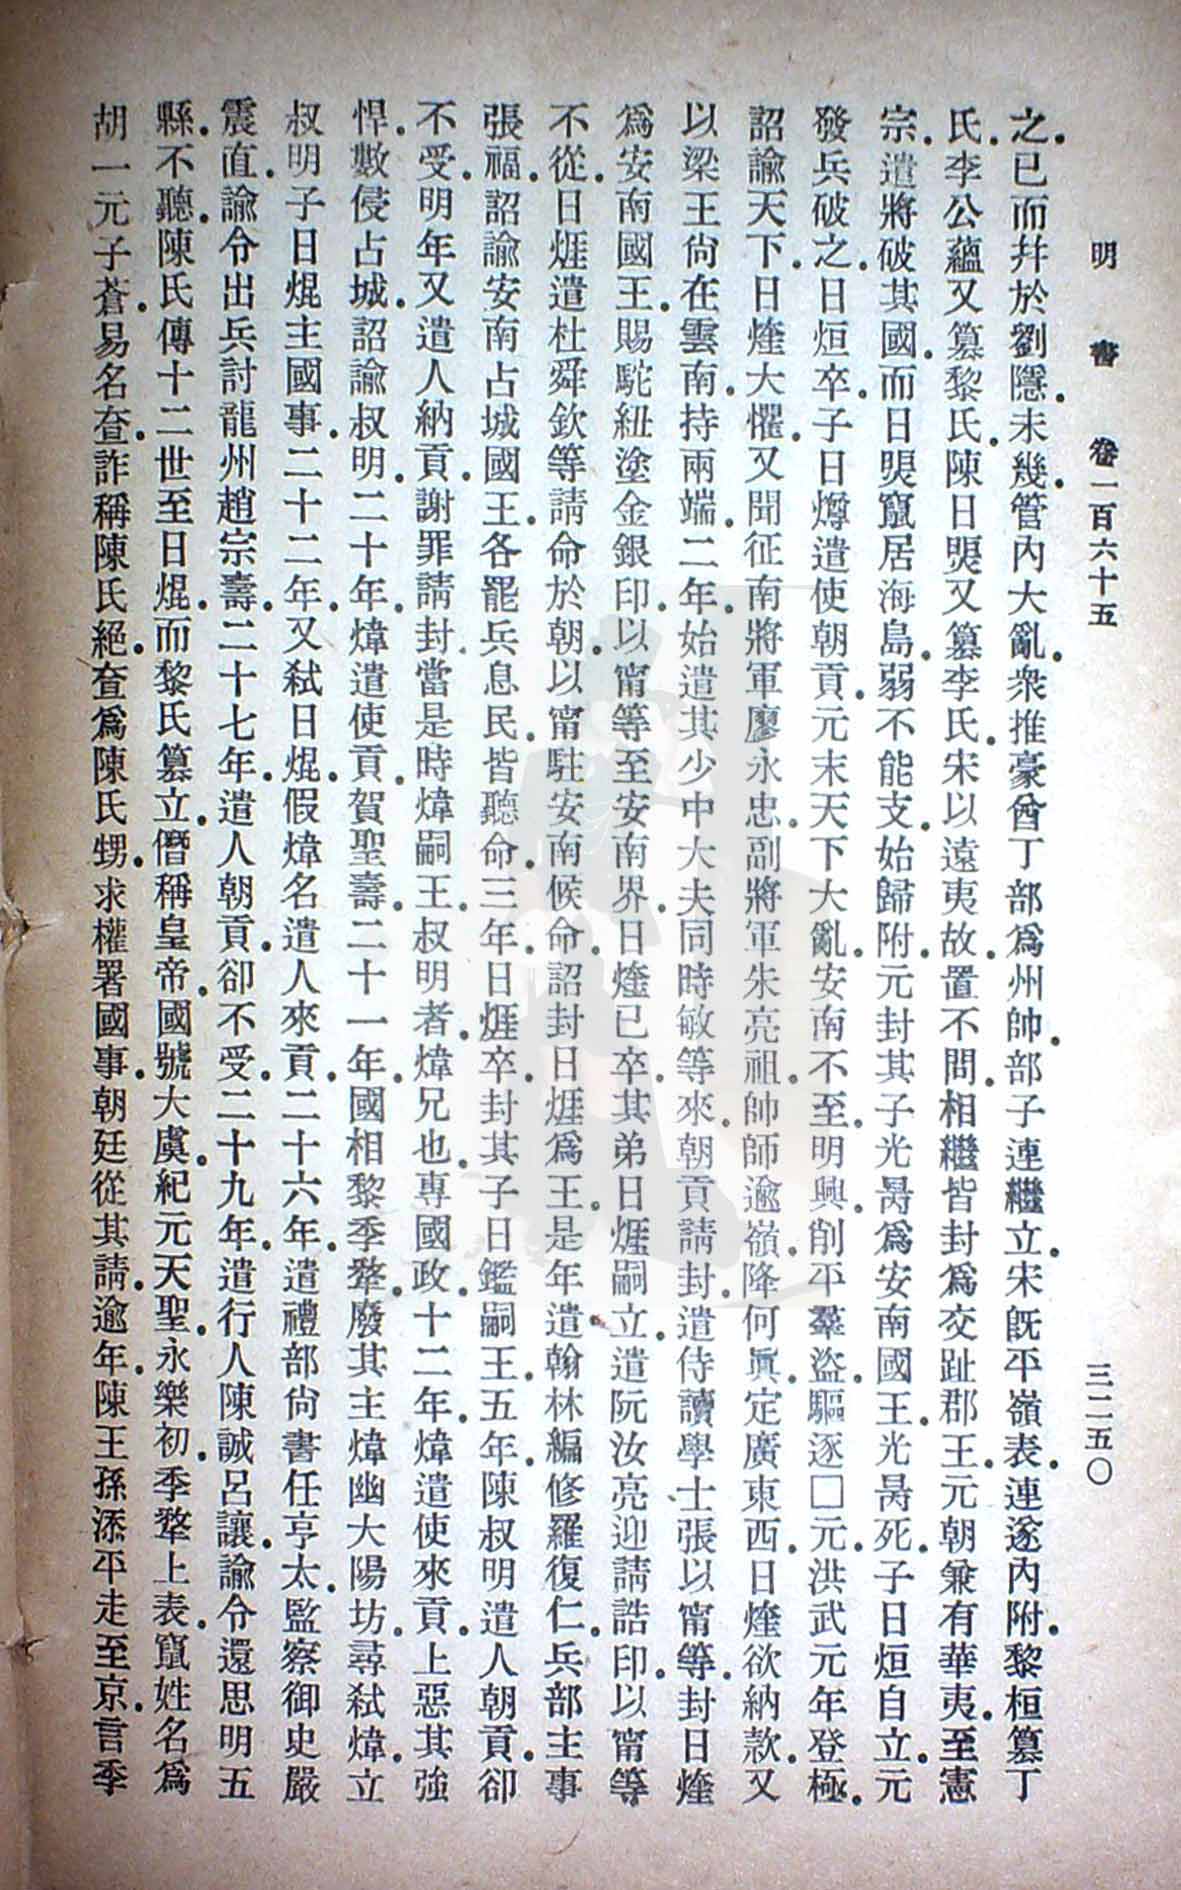 明　書　卷一百六十五　三二五〇
之已而幷於劉隱未幾管內大亂衆推豪酋丁部爲州帥部子連繼立宋旣平嶺表連遂內附黎桓篡丁
氏李公蘊又篡黎氏陳日煚又篡李氏宋以遠夷故置不問相繼皆封爲交趾郡王元朝兼有華夷至憲
宗遣將破其國而日煚竄居海島弱不能支始歸附元封其子光昺爲安南國王光昺死子日烜自立元
發兵破之日烜卒子日燇遣使朝貢元末天下大亂安南不至明興削平羣盜驅逐□元洪武元年登極
詔諭天下日煃大懼又聞征南將軍廖永忠副將軍朱亮祖帥師逾嶺降何眞定廣東西日煃欲納款又
以梁王尙在雲南持兩端二年始遣其少中大夫同時敏等來朝貢請封遣侍讀學士張以甯等封日煃
爲安南國王賜駝紐塗金銀印以甯等至安南界日煃已卒其弟日熞嗣立遣阮汝亮迎請誥印以甯等
不從日熞遣杜舜欽等請命於朝以甯駐安南候命詔封日熞爲王是年遣翰林編修羅復仁兵部主事
張福詔諭安南占城國王各罷兵息民皆聽命三年日熞卒封其子日鑑嗣王五年陳叔明遣人朝貢卻
不受明年又遣人納貢謝罪請封當是時煒嗣王叔明者煒兄也專國政十二年煒遣使來貢上惡其強
悍數侵占城詔諭叔明二十年煒遣使貢賀聖壽二十一年國相黎季犛廢其主煒幽大陽坊尋弑煒立
叔明子日焜主國事二十二年又弑日焜假煒名遣人來貢二十六年遣禮部尙書任亨太監察御史嚴
震直諭令出兵討龍州趙宗壽二十七年遣人朝貢卻不受二十九年遣行人陳誠呂讓諭令還思明五
縣不聽陳氏傳十二世至日焜而黎氏篡立僭稱皇帝國號大虞紀元天聖永樂初季犛上表竄姓名爲
胡一元子蒼易名𡗨詐稱陳氏絕𡗨爲陳氏甥求權署國事朝廷從其請逾年陳王孫添平走至京言季